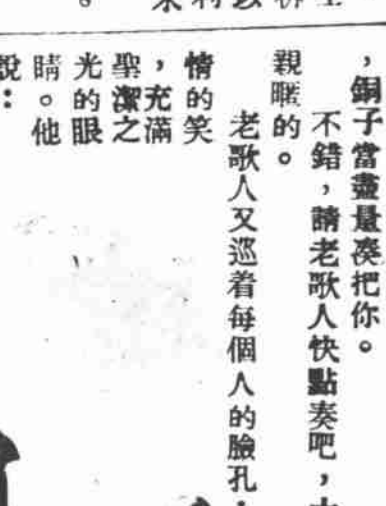 ，銅子當盡量凑把你。
不錯，請老歌人快點奏吧，
親暱的。
老歌人又巡着每個人的臉孔，
情的笑
，充滿
聖潔之
光的眼
睛。他
說：